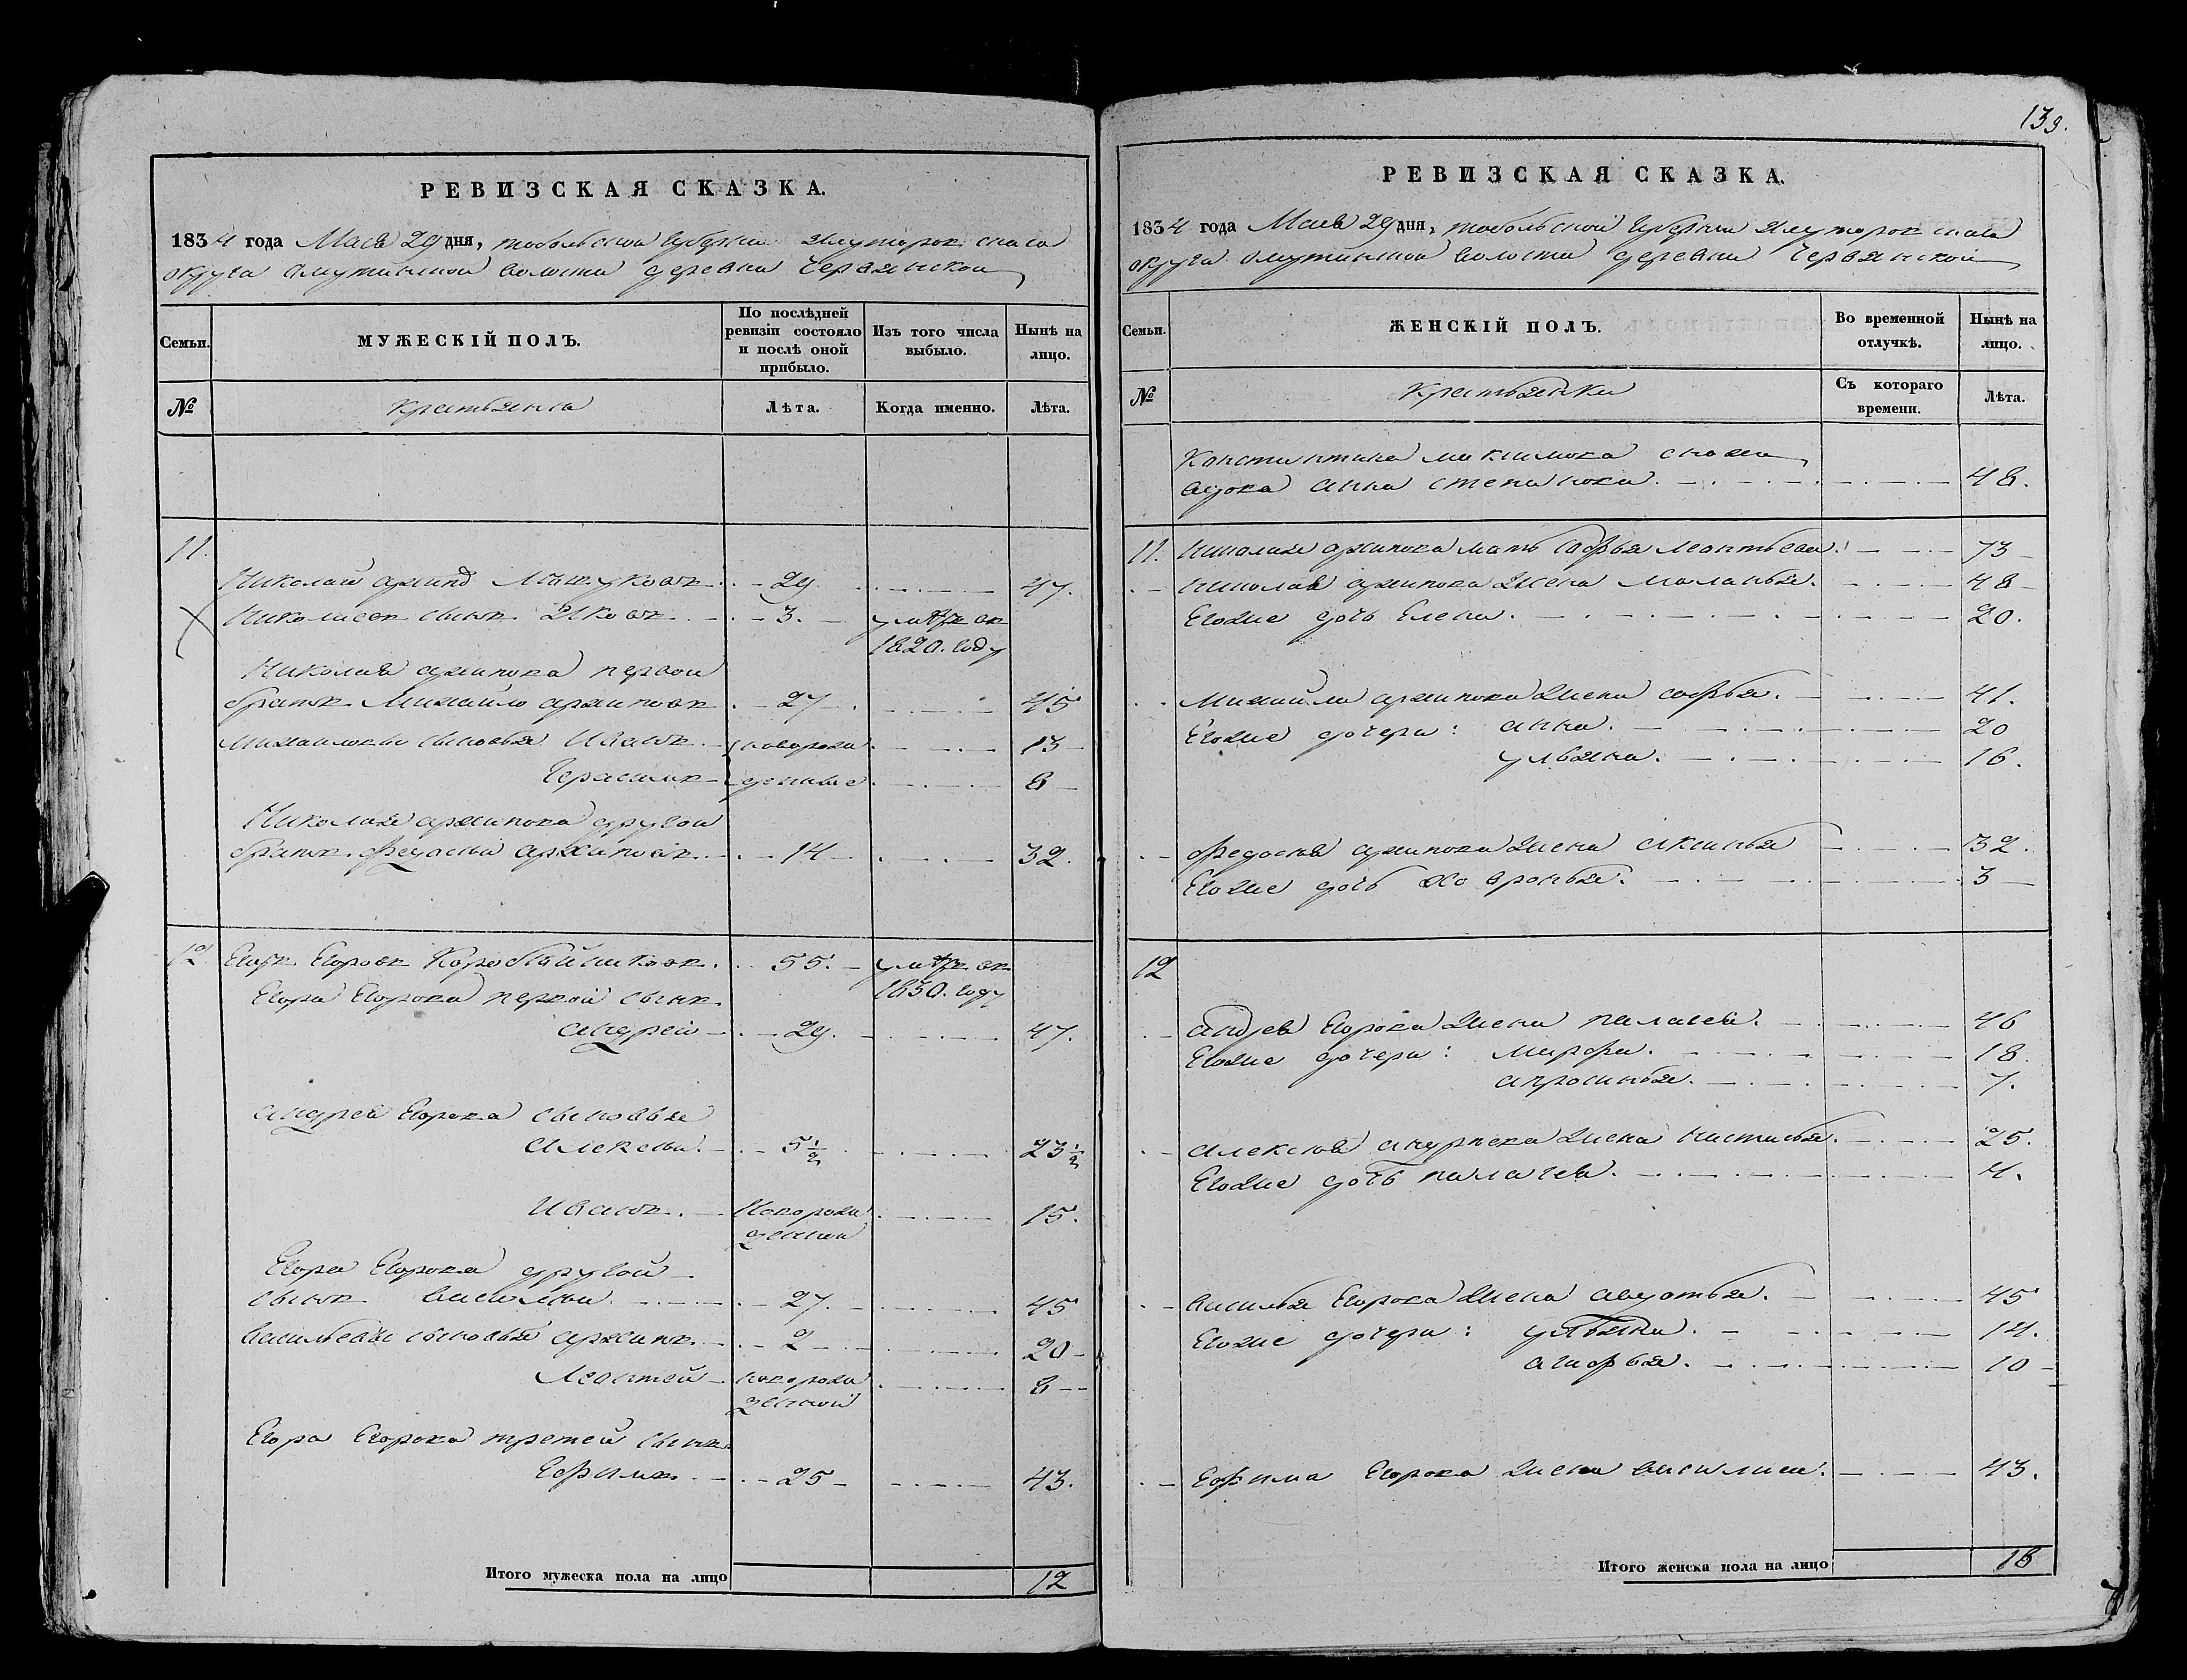 РЕВИЗСКАЯ СКАЗКА.
1834 года Маія 29 дня, тобольской Губерніи Ялуторовскаго
округа Омутинской волости деревни Червянской
Семьи.
МУЖЕСКІЙ ПОЛЪ.
По послѣдней ревизіи состояло и послѣ оной прибыло.
Изъ того числа выбыло.
Нынѣ на лицо.
№
крестьяна
Лѣта.
Когда именно.
Лѣта.
11.
Николай архипов 29 47.
Николаевъ сынъ Яковъ 3. умре въ
1820. году
Николая архипова первой
братъ Михайло архиповъ 27 45
Михайловы сыновья Иванъ новорож 13
Герасимъ денные 8
Николая архипова другой
братъ Федосей архиповъ 14 32.
12 Егоръ Егоровъ Коробейниковъ. 55. умре въ
Егора Егорова первой сынъ 1830. году
андрей 29. 47.
андрея Егорова сыновья
алексей 5 1/2 23 1/2
Иванъ. Новорож 15.
денной
Егора Егорова другой
сынъ василей 27. 45
васильевы сыновья архипъ 2 20
Леонтей новорож 8
денной
Егора Егорова третей сынъ
Ефимъ 25 43.
Итого мужеска пола на лицо 12
139.
РЕВИЗСКАЯ СКАЗКА.
1834 года Маія 29 дня, тобольской Губерніи Ялуторовскаго
округа Омутинской волости деревни Червянской
Семьи.
ЖЕНСКІЙ ПОЛЪ.
Во временной отлучкѣ.
Нынѣ на лицо.
№
крестьянки
Съ котораго времени.
Лѣта.
Констинтина максимова сноха
вдова анна степанова. 48.
11. Николая архипова мать софья леонтьева. 73
Николая архипова жена маланья. 48
Егоже дочь Елена. 20.
Михайла архипова жена софья. 41.
Егоже дочери: анна. 20
ульяна. 16.
Федосея архипова жена аксинья 32.
Егоже дочь хавронья. 3
12
андрея Егорова жена палагея. 46
Егоже дочери: марфа. 18
апросинья. 7.
алексея андреева жена настасья. 25.
Егоже дочь палагея. 4.
василья Егорова жена авдотья. 45
Егоже дочери: ульяна. 14.
агафья. 10
Ефима Егорова жена василиса. 43.
Итого женска пола на лицо 18